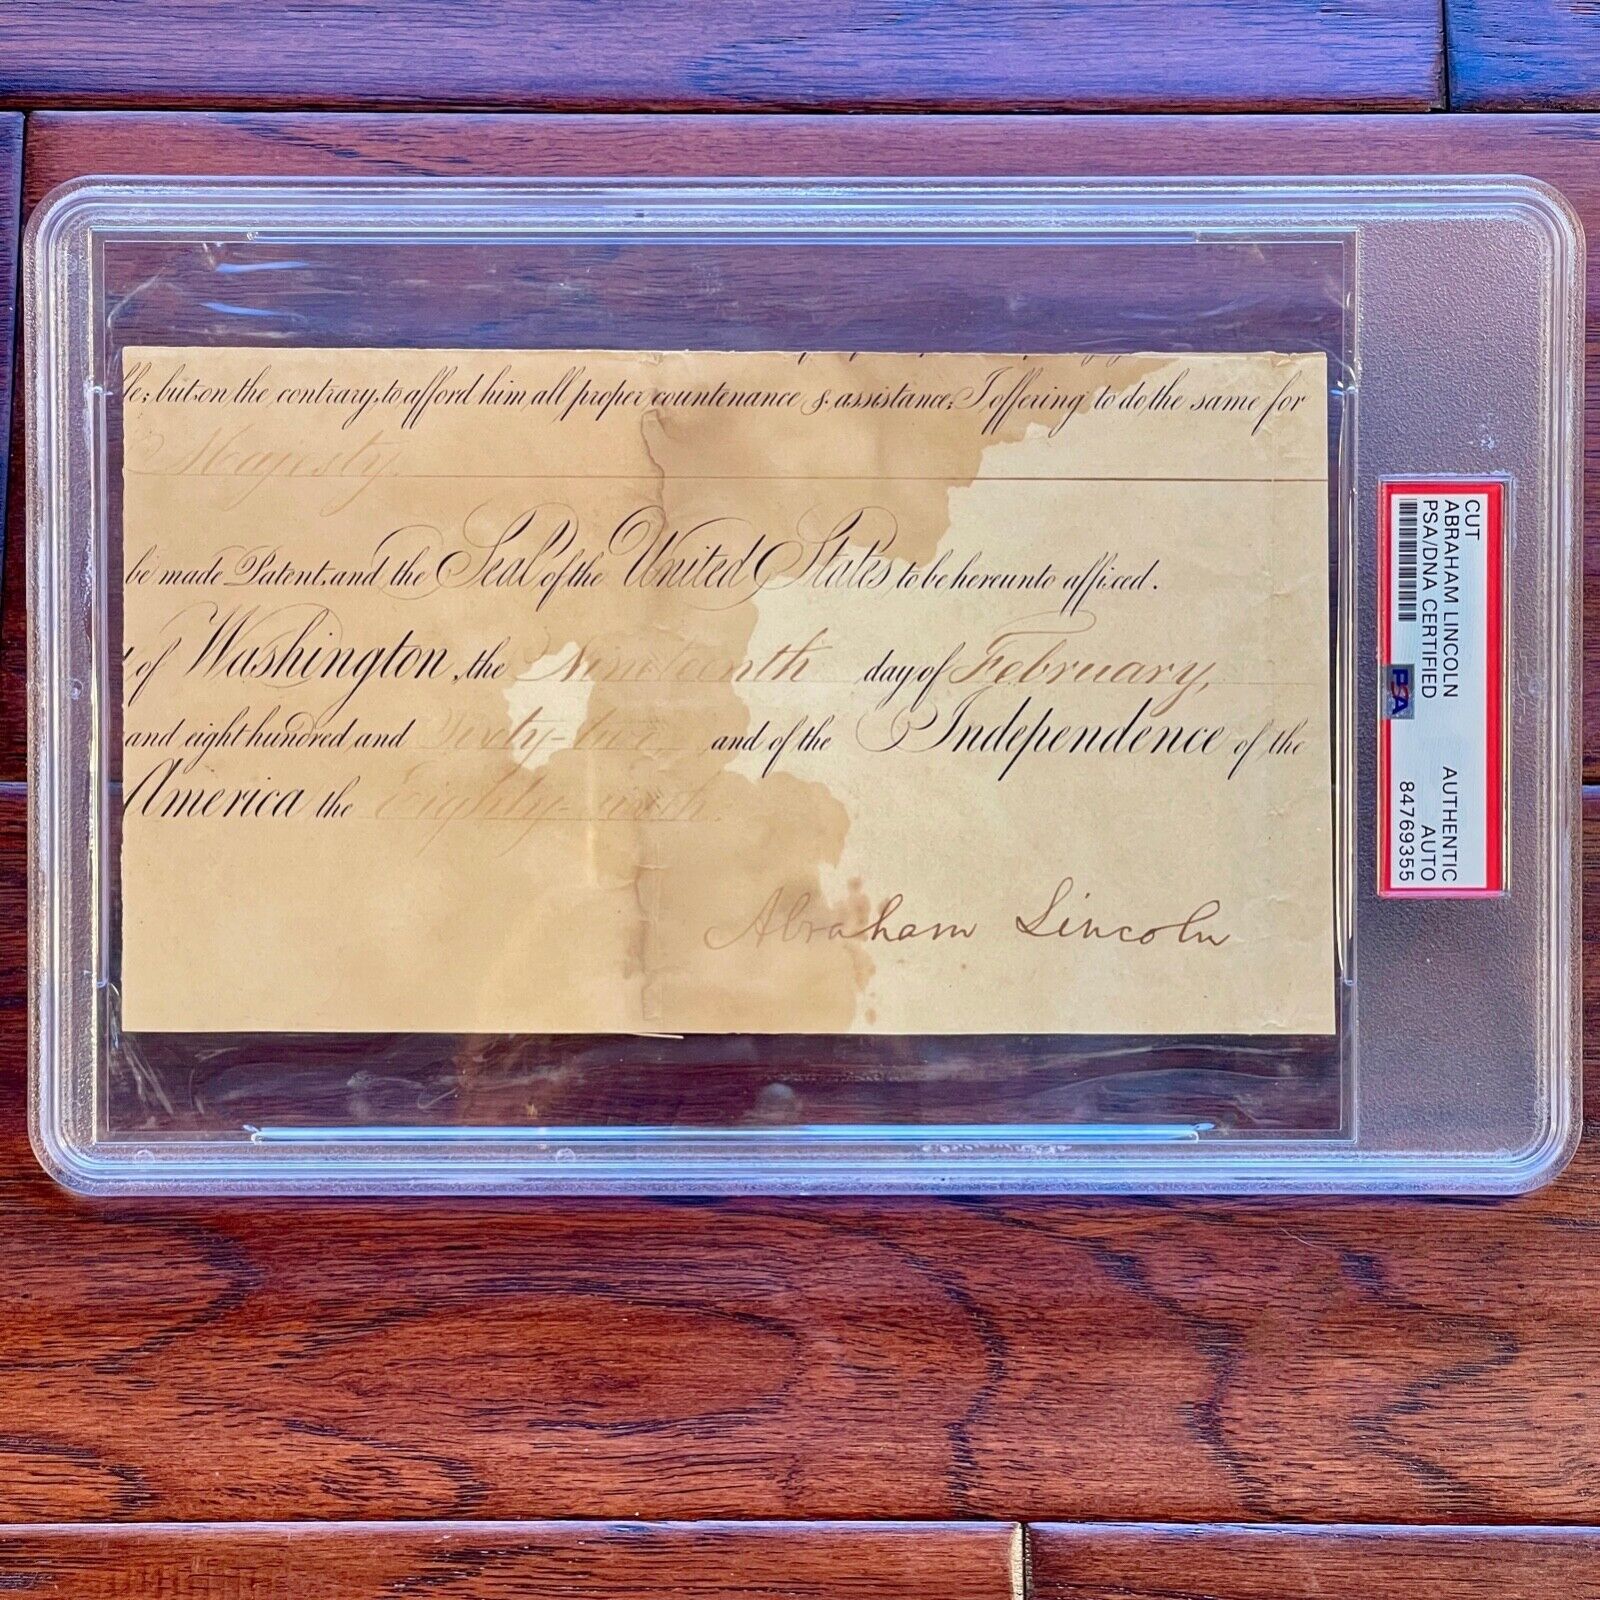 but on the contrary, to afford him all proper countenance & assistance; I offering to do the same for
Majesty.
be made Patent, and the Seal of the United States to be hereunto affixed.
of Washington, the Nineteenth day of February,
and eight hundred and Sixty-two, and of the Independence of the
America the Eighty-sixth.
Abraham Lincoln
CUT
ABRAHAM LINCOLN
PSA/DNA CERTIFIED
PSA
AUTHENTIC
AUTO
84769355